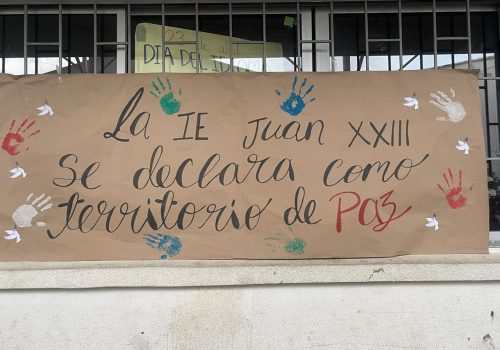 23 de abril
DIA DEL IDIOMA
La IE Juan XXIII
Se declara como
territorio de Paz